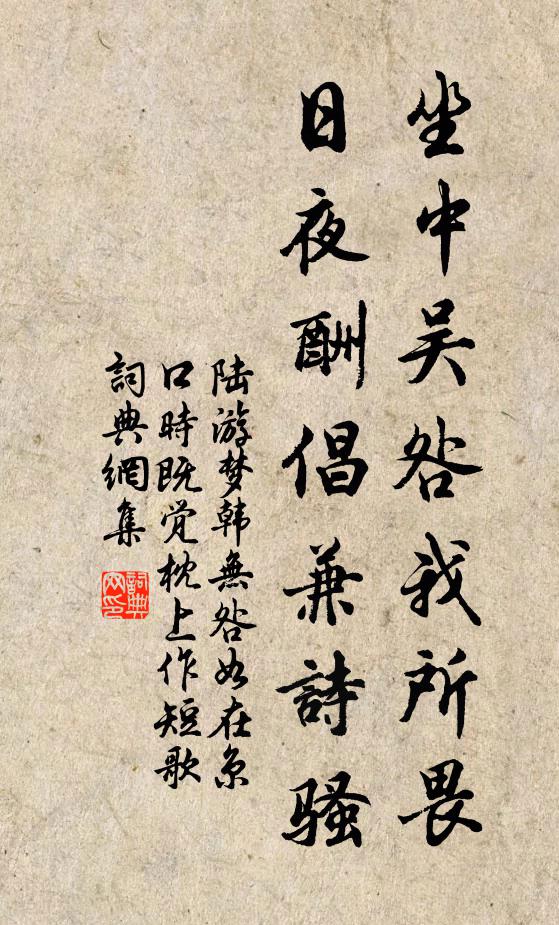 坐中吴咎我所畏
日夜酬倡兼詩骚
陆游梦韩無咎如在京
口時既觉枕上作短歌
詞典網集
詞典
网印